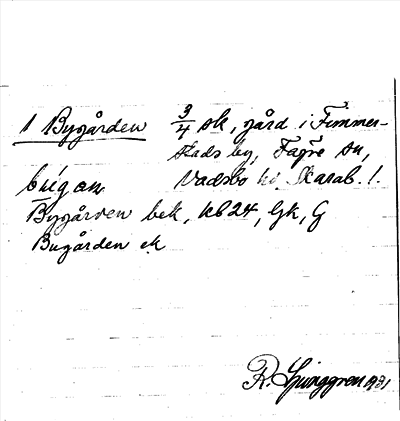 1 Bygården 3/4 sk, gård i Fimmer-
stads by, Fägre sn,
Vadsbo hd Skarab. l.
bu'gan
Bygården bek, kb 24, Gk, G
Bugården ek
R. Ljunggren 1931